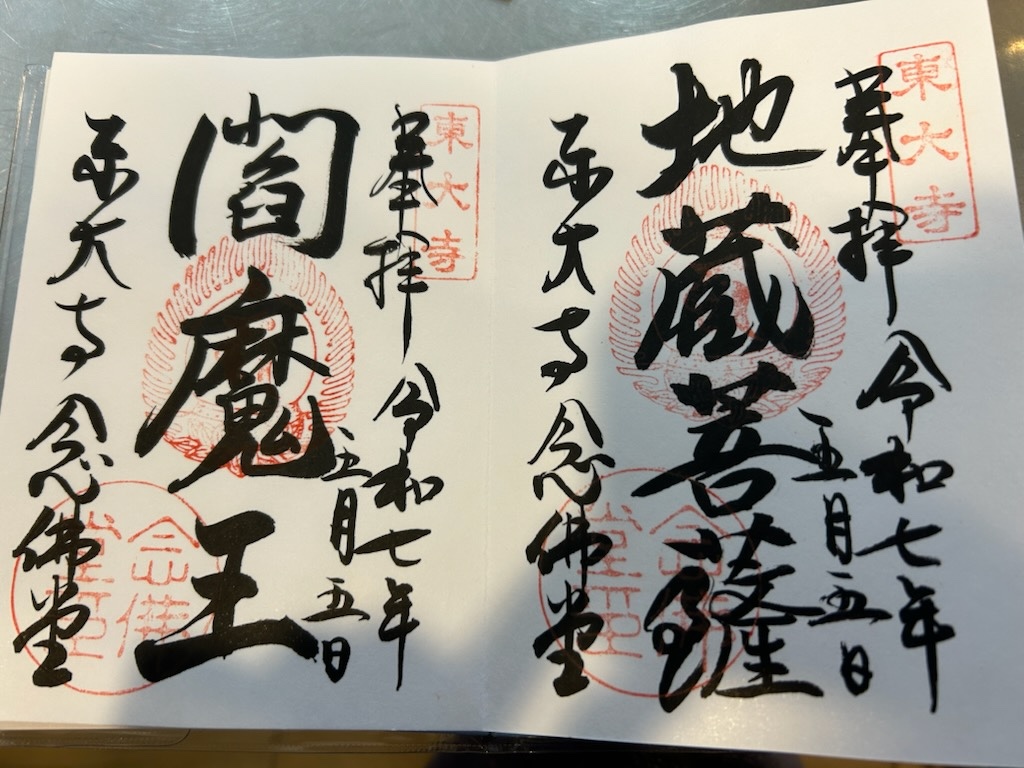 東大寺
奉拝 令和七年
五月五日
地蔵菩薩
東大寺 念佛堂
念佛堂印
東大寺
奉拝 令和七年
五月五日
閻魔王
東大寺 念佛堂
念佛堂印